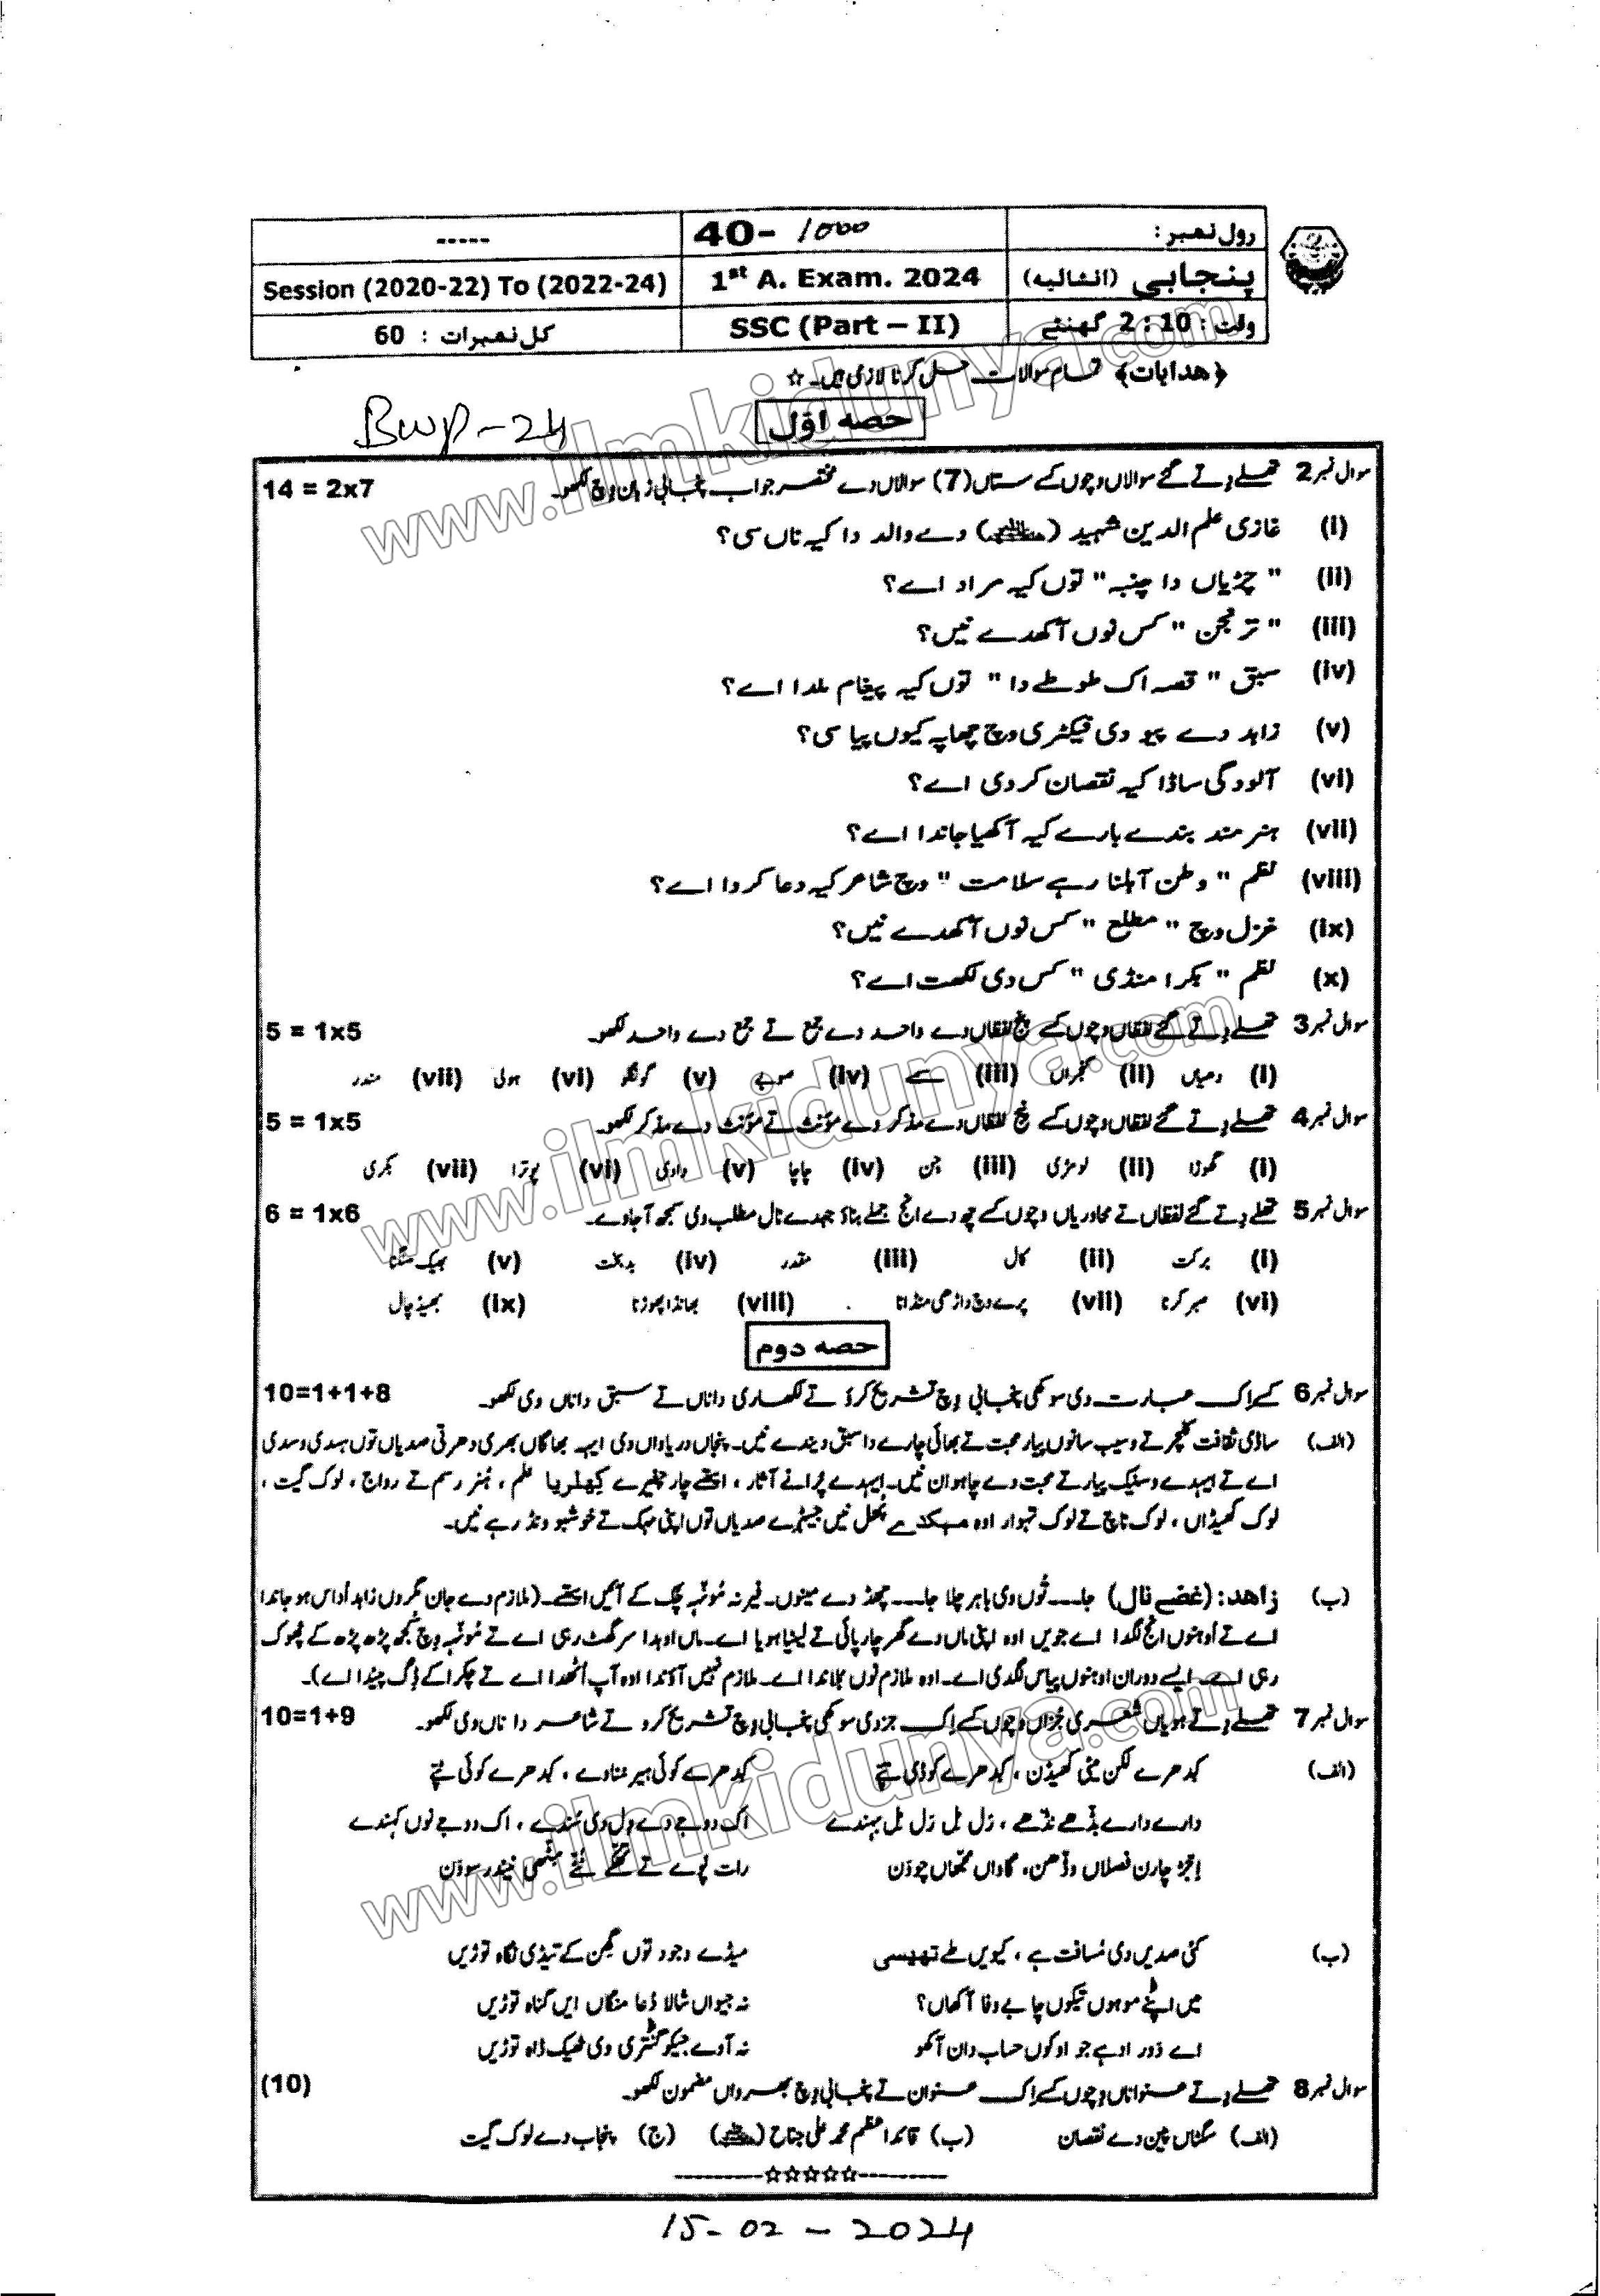 رول نمبر:
40- 1000
-----
پنجابی (انشائیہ)
1st A. Exam. 2024
Session (2020-22) To (2022-24)
وقت: 2:10 گھنٹے
SSC (Part – II)
کل نمبرات : 60
﴿هدایات﴾ تمام سوالات حل کرنا لازمی ہیں۔ ☆
BWP-24
حصه اوّل
سوال نمبر 2 تھلے دِتے گئے سوالاں وچوں کے ستاں (7) سوالاں دے مختصر جواب پنجابی زبان وچ لکھو۔ 14 = 2x7
(i) غازی علم الدین شہید () دے والد دا کیہ ناں سی؟
(ii) " چڑیاں دا چنبہ " توں کیہ مراد اے؟
(iii) " ترنجن " کس نوں آکھدے نیں؟
(iv) سبق " قصہ اک طوطے دا " توں کیہ پیغام ملدا اے؟
(v) زاہد دے پیو دی فیکٹری وچ چھاپہ کیوں پیا سی؟
(vi) آلودگی ساڈا کیہ نقصان کردی اے؟
(vii) ہنر مند بندے بارے کیہ آکھیا جاندا اے؟
(viii) نظم " وطن آہلنا رہے سلامت " وچ شاعر کیہ دعا کردا اے؟
(ix) غزل وچ " مطلع " کس نوں آکھدے نیں؟
(x) نظم " بکرا منڈی " کس دی لکھت اے؟
سوال نمبر 3 تھلے دِتے گئے لفظاں وچوں کے پنج لفظاں دے واحد دے جمع تے جمع دے واحد لکھو۔ 5 = 1x5
(i) دھیاں (ii) گجراں (iii) سے (iv) صوبے (v) گونگلو (vi) ہولی (vii) مندر
سوال نمبر 4 تھلے دِتے گئے لفظاں وچوں کے پنج لفظاں دے مذکر دے مؤنث تے مؤنث دے مذکر لکھو۔ 5 = 1x5
(i) گھوڑا (ii) لومڑی (iii) جن (iv) چاچا (v) دادی (vi) پوترا (vii) بکری
سوال نمبر 5 تھلے دِتے گئے لفظاں تے محاوریاں وچوں کے چھ دے انج جملے بناؤ جیہدے نال مطلب دی سمجھ آجاوے۔ 6 = 1x6
(i) برکت (ii) کال (iii) مقدر (iv) بدبخت (v) بھیک منگنا
(vi) صبر کرنا (vii) پرے وچ داڑھی منڈانا (viii) بھانڈا پھوڑنا (ix) بھیڈ چال
حصه دوم
سوال نمبر 6 کسے اِک عبارت دی سوکھی پنجابی وچ تشریح کرو تے لکھاری دا ناں تے سبق دا ناں وی لکھو۔ 10=1+1+8
(الف) ساڈی ثقافت کلچر تے وسیب سانوں پیار محبت تے بھائی چارے دا سبق دیندے نیں۔ پنجاں دریاواں دی ایہہ بھاگاں بھری دھرتی صدیاں توں ہسدی وسدی
اے تے ایہدے وسنیک پیار تے محبت دے چاہوان نیں۔ ایہدے پُرانے آثار ، ایتھے چار چفیرے کھلریا علم ، ہنر رسم تے رواج ، لوک گیت ،
لوک کھیڈاں ، لوک ناچ تے لوک تہوار اوہ مہکدے پھل نیں جیہڑے صدیاں توں اپنی مہک تے خوشبو ونڈ رہے نیں۔
(ب) زاہد: (غصے نال) جا۔۔۔ تُوں وی باہر چلا جا۔۔۔ چھڈ دے مینوں۔ فیر نہ مُونہہ چک کے آئیں ایتھے۔ (ملازم دے جان مگروں زاہد اُداس ہو جاندا
اے تے اوہنوں انج لگدا اے جویں اوہ اپنی ماں دے گھر چارپائی تے لیٹیا ہویا اے۔ ماں اوہدا سر گھٹ رہی اے تے مُونہہ وچ کجھ پڑھ پڑھ کے پھوک
رہی اے۔ ایسے دوران اوہنوں پیاس لگدی اے۔ اوہ ملازم نوں بلاندا اے۔ ملازم نہیں آؤندا اوہ آپ اُٹھدا اے تے چکرا کے ڈِگ پیندا اے)۔
سوال نمبر 7 تھلے دِتے ہویاں شعری جُزاں وچوں کسے اِک جز دی سوکھی پنجابی وچ تشریح کرو تے شاعر دا ناں وی لکھو۔ 10=1+9
(الف) کدھرے لکن میٹی کھیڈن ، کدھرے کوڈی تے کدھرے کوئی ہیر سناوے ، کدھرے کوئی تے
دارے دارے بُڈھے نڈھے ، رَل مل رَل مل بہندے اک دوجے دے دِل دی سُندے ، اک دوجے نوں کہندے
اِجڑ چارن فصلاں وڈھن، گاواں مجھاں چوون رات پوے تے تھکے ٹٹے مِٹھی نیندر سوون
(ب) کئی صدیں دی مُسافت ہے ، کیویں طے تھیسی میڈے وجود توں گھِن کے تیڈی نگاہ توڑیں
میں اپنے موہوں تیکوں چا بے وفا آکھاں؟ نہ جیواں شالا دُعا منگاں ایں گناہ توڑیں
اے دَور اوہے جو اوکوں حساب دان آکھو نہ آوے جیکو گنتری وی ٹھیک ڈاہ توڑیں
سوال نمبر 8 تھلے دِتے عنواناں وچوں کسے اِک عنوان تے پنجابی وچ بھرواں مضمون لکھو۔ (10)
(الف) سگٹاں پین دے نقصان (ب) قائداعظم محمد علی جناح () (ج) پنجاب دے لوک گیت
---------☆☆☆☆☆---------
15-02-2024
www.ilmkidunya.com
www.ilmkidunya.com
www.ilmkidunya.com